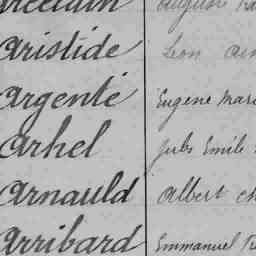 Aristide Léon
Argentié Eugène Mari
Arhel Jules Emile
Arnauld Albert Ch
Arribard Emmanuel